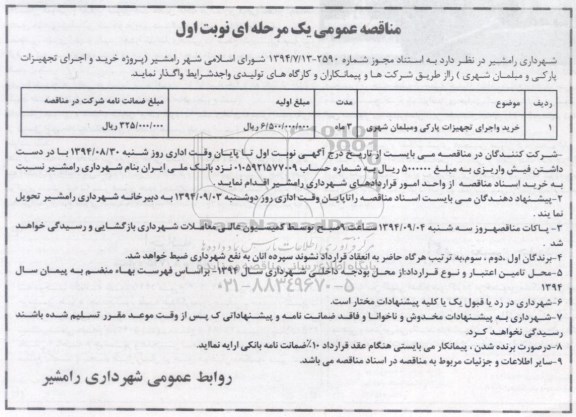 مناقصه عمومی یک مرحله ای نوبت اول
شهرداری رامشیر در نظر دارد به استناد مجوز شماره ۲۵۹۰-۱۳۹۴/۷/۱۳ شورای اسلامی شهر رامشیر (پروژه خرید و اجرای تجهیزات
پارکی و مبلمان شهری ) راز طریق شرکت ها و پیمانکاران و کارگاه های تولیدی واجدشرایط واگذار نماید.
ردیف موضوع مدت مبلغ اولیه مبلغ ضمانت نامه شرکت در مناقصه
۱ خرید واجرای تجهیزات پارکی ومبلمان شهری ۳ ماه ۶/۵۰۰/۰۰۰/۰۰۰ ریال ۳۲۵/۰۰۰/۰۰۰ ریال
-شرکت کنندگان در مناقصه می بایست از تاریخ درج آگهی نوبت اول تا پایان وقت اداری روز شنبه ۱۳۹۴/۰۸/۳۰ با در دست
داشتن فیش واریزی به مبلغ ۵۰۰۰۰۰ ریال به شماره حساب ۰۱۰۵۹۲۱۵۷۷۰۰۹ نزد بانک ملی ایران بنام شهرداری رامشیر نسبت
به خرید اسناد مناقصه از واحد امور قراردادهای شهرداری رامشیر اقدام نمایند.
۲-پیشنهاد دهندگان می بایست اسناد مناقصه راتاپایان وقت اداری روز دوشنبه ۱۳۹۴/۰۹/۰۲ به دبیرخانه شهرداری رامشیر تحویل
نمایند .
۳- پاکات مناقصهروز سه شنبه ۱۳۹۴/۰۹/۰۳ ساعت ۹ صبح توسط کمیسیون عالی معاملات شهرداری بازگشایی و رسیدگی خواهد
شد .
۴-برندگان اول ،دوم ، سوم،به ترتیب هرگاه حاضر به انعقاد قرارداد نشوند سپرده آنان به نفع شهرداری ضبط خواهد شد.
۵-محل تامین اعتبار و نوع قرارداداز محل بودجه داخلی شهرداری سال ۱۳۹۴- براساس فهرست بهاء منضم به پیمان سال
۱۳۹۴
۰۲۱-۸۸۳۴۹۶۷۰-۵
۶-شهرداری در رد یا قبول یک یا کلیه پیشنهادات مختار است.
۷-شهرداری به پیشنهادات مخدوش و ناخوانا و فاقد ضمانت نامه و پیشنهاداتی ک پس از وقت موعد مقرر تسلیم شده باشند
رسیدگی نخواهد کرد.
۸-درصورت برنده شدن ، پیمانکار می بایستی هنگام عقد قرارداد ۱۰٪ضمانت نامه بانکی ارایه نمایند.
۹-سایر اطلاعات و جزئیات مربوط به مناقصه در اسناد مناقصه می باشد.
روابط عمومی شهرداری رامشیر